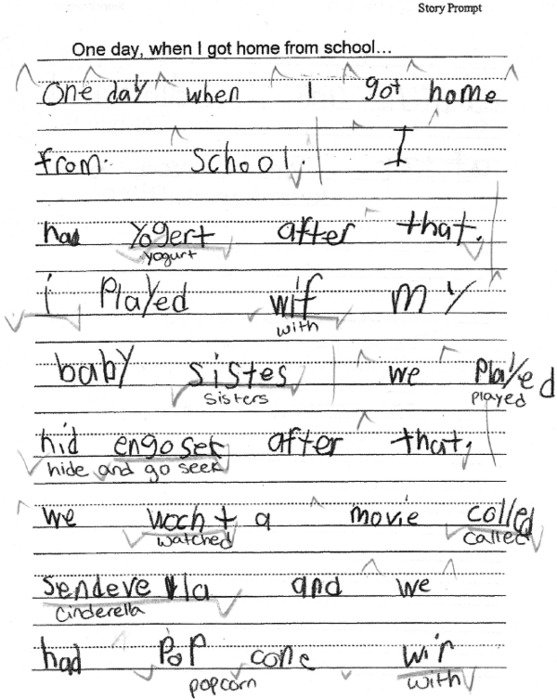 Story Prompt
One day, when I got home from school...
One day when I got home
from. school. I
had Yogert after that.
yogurt
i Played wif my
with
baby sistes we Played
sisters played
hid engosek after that.
hide and go seek
we wocht a movie colled
watched called
sendeverlla and we
cinderella
had Pop cone wir
popcorn with